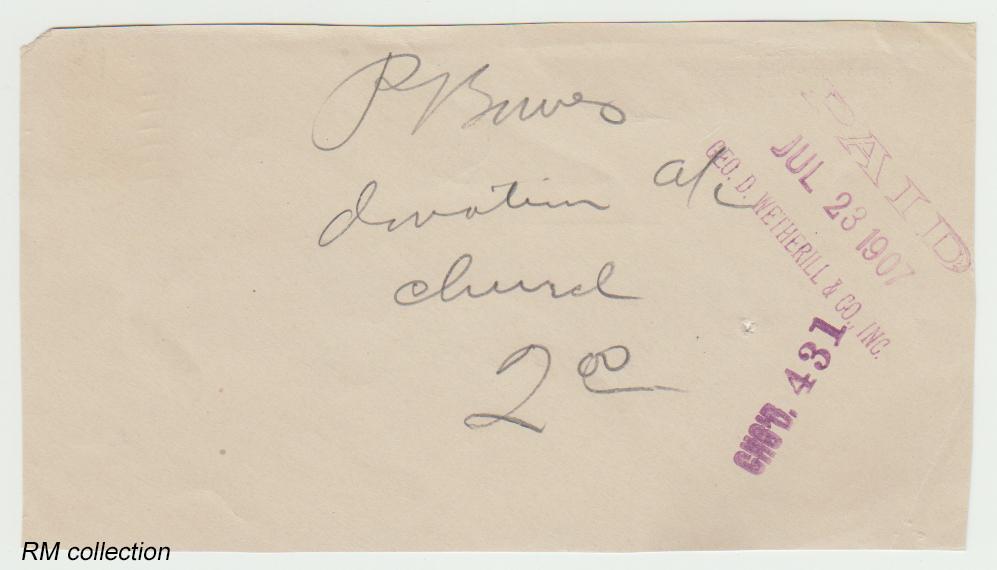 P Bowes
donation a/c
church
2 00
PAID
JUL 23 1907
GEO. D. WETHERILL & CO., INC.
CHG'D. 431
RM collection